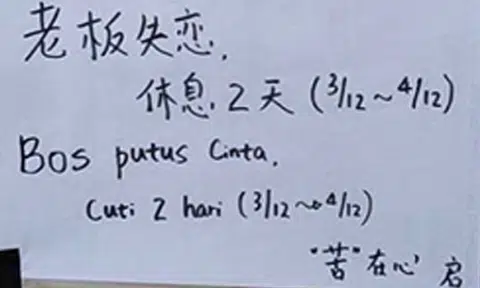 老板失恋.
休息 2 天 (3/12~4/12)
Bos putus Cinta.
Cuti 2 hari (3/12~4/12)
"苦"在心 启